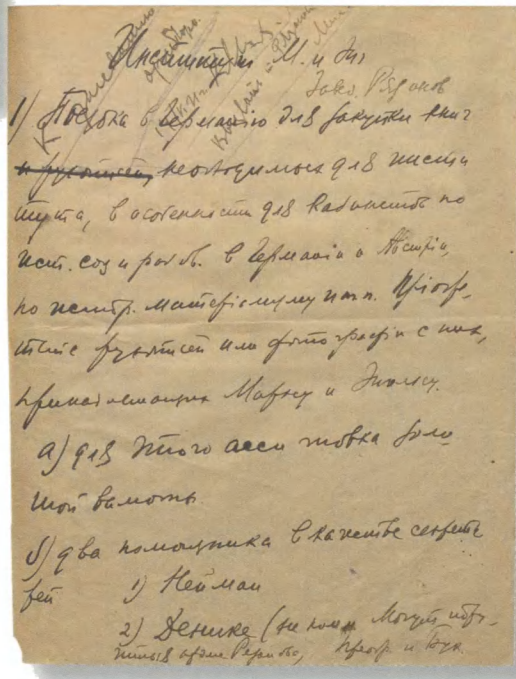 Институт М. и Эн
Завед. Рязанов
1) Поездка в Германiю для закупки книг
и рукописей, необходимых для инсти
тута, в особенности для кабинетов по
ист. соц. и раб. дв. в Германiи и Австрiи,
по истор. матерiализму и т. п. Прiобре
тенiе рукописей или фотографiи с них,
принадлежащих Марксу и Энгельсу.
а) для этого ассигновка золо
той валюты
б) два помощника в качестве секрета
рей 1) Нейман
2) Денике